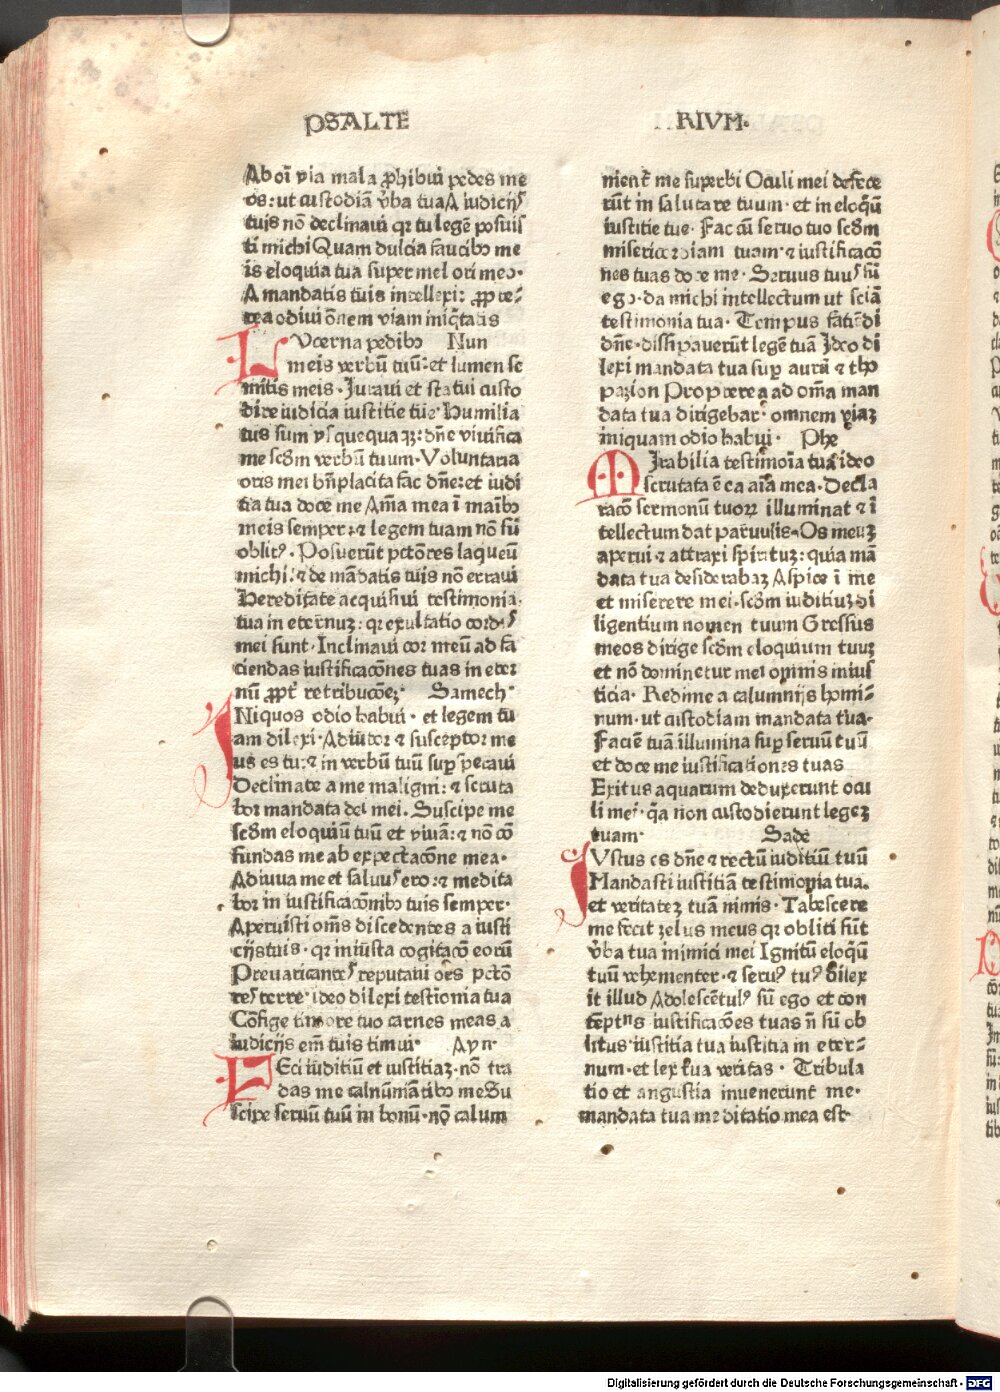 PSALTE
RIVM·
Ab oı̄ via mala ꝓhibui pedes me
os: ut custodiā v̄ba tua A iudicijs
tuis nō declinaui qꝛ tu legē posuis
ti michi Quam dulcia faucibꝰ me
is eloquia tua super mel ori meo·
A mandatis tuis intellexi: ꝓpte⸗
rea odiui ōnem viam iniq̄tatis
LVcerna pedibꝰ Nun
meis verbū tuū: et lumen se
mitis meis· Juraui et statui custo
dire iudicia iustitie tue· Humilia
tus sum vsquequaqꝫ: dn̄e viuifica
me scd̄m verbū tuum· Voluntaria
oris mei bn̄placita fac dn̄e: et iudi
tia tua doce me Aı̄a mea ī maı̄bꝰ
meis semper: ⁊ legem tuam nō sū
oblitꝰ· Posuerūt pctōres laqueū
michi: ⁊ de mādatis tuis nō erraui
Hereditate acquisiui testimonia·
tua in eternuꝫ: qꝛ exultatio cordꝭ
mei sunt· Inclinaui cor meū ad fa
ciendas iustificacōnes tuas in eter
nū ꝓpt̄ retribucōeꝫ· Samech·
INiquos odio habui· et legem tu
am dilexi· Adiutor ⁊ susceptor me
us es tu: ⁊ in verbū tuū suꝑ speraui
Declinate a me maligni: ⁊ scruta
bor mandata dei mei· Suscipe me
scd̄m eloquiū tuū et viuā: ⁊ nō cō
fundas me ab expectacōne mea·
Adiuua me et saluus ero: ⁊ medita
bor in iustificacōnibꝰ tuis semper·
Apreuisti om̄s discedentes a iusti
cijs tuis· qꝛ iniusta cogitacō eorū
Preuaricantes reputaui oēs pctō
res terre· ideo dilexi testīonia tua
Cōfige timore tuo carnes meas a
iudicijs em̄ tuis timui· Ayn·
FEci iuditiū et iustitiaꝫ· nō tra
das me calnūmātibꝰ me Su
scipe seruū tuū in bonū· nō calum
nient̄ me superbi Oculi mei defece
rūt in salutare tuum· et in eloq̄ū
iustitie tue· Fac cū seruo tuo scd̄m
misericordiam tuam· ⁊ iustificacō
nes tuas doce me· Seruus tuus sū
ego· da michi intellectum ut sciā
testimonia tua· Tempus faciēdi
dn̄e· dissipauerūt legē tuā Ideo di
lexi mandata tua suꝑ aurū ⁊ tho
pazion Propterea ad om̄a man
data tua dirigebar· omnem viaꝫ
iniquam odio habui· Phe
MIrabilia testimoı̄a tua ideo
scrutata ē ea aı̄a mea· Decla
racō sermonū tuoꝝ illuminat ⁊ ī
tellectum dat paruulis· Os meuꝫ
aperui ⁊ attraxi spirituꝫ: quia mā
data tua desiderabaꝫ Aspice ī me
et miserere mei· scd̄m iuditiuꝫ di
ligentium nomen tuum Gressus
meos dirige scd̄m eloquium tuuꝫ
et nō dominetur mei omnis inius
ticia· Redime a calumnijs homi⸗
num· ut custodiam mandata tua·
Faciē tuā illumina suꝑ seruū tuū
et doce me iustificationes tuas
Exitus aquarum deduxerunt ocu
li mei· q̄a non custodierunt legeꝫ
tuam· Sade
IVstus es dn̄e ⁊ rectū iuditiū tuū
Mandasti iustitiā testimonia tua·
et veritateꝫ tuā nimis· Tabescere
me fecit zelus meus qꝛ obliti sūt
v̄ba tua inimici mei Ignitū eloq̄ū
tuū vehementer· ⁊ seruꝰ tuꝰ dilex
it illud Adolescētulꝰ sū ego et con
tēptꝰ iustificacōes tuas n̄ sū ob
litus· iustitia tua iustitia in eter⸗
num· et lex tua veritas· Tribula
tio et angustia inuenerunt me·
mandata tua meditatio mea est·
Digitalisierung gefördert durch die Deutsche Forschungsgemeinschaft - DFG